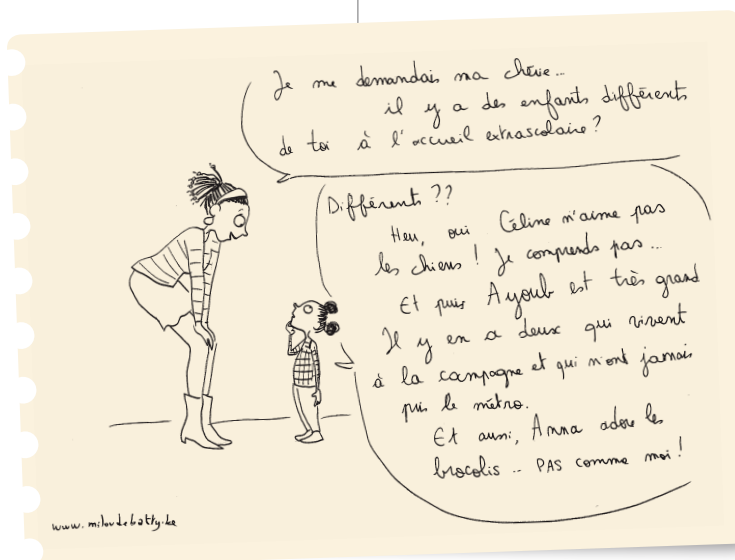 Je me demandais ma chérie...
il y a des enfants différents
de toi à l'accueil extrascolaire ?
Différents ??
Heu, oui Céline n'aime pas
les chiens ! Je comprends pas...
Et puis Ayoub est très grand
Il y en a deux qui vivent
à la campagne et qui n'ont jamais
pris le métro.
Et aussi, Anna adore les
brocolis .. PAS comme moi !
www.miloudebatty.be